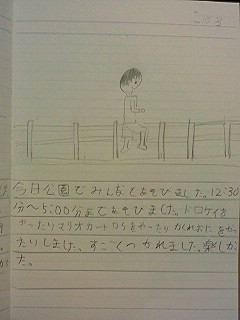 今日公園でみんなとあそびました。12:30
分〜5:00分までであそびました。ドロケイを
やったりマリオカートDSをやったりかくれおにをやっ
たりしました。すごくつかれました。楽しかっ
た。